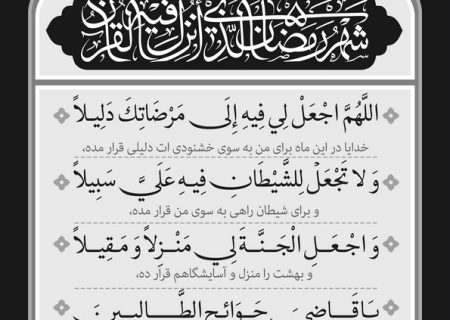 شَهْرُ رَمَضَانَ الَّذِي أُنْزِلَ فِيهِ الْقُرْآنُ
اللَّهُمَّ اجْعَلْ لِي فِيهِ إِلَى مَرْضَاتِكَ دَلِيلاً
خدایا در این ماه برای من به سوی خشنودی ات دلیلی قرار مده،
وَ لا تَجْعَلْ لِلشَّيْطَانِ فِيهِ عَلَيَّ سَبِيلاً
و برای شیطان راهی به سوی من قرار مده،
وَ اجْعَلِ الْجَنَّةَ لِي مَنْزِلاً وَ مَقِيلاً
و بهشت را منزل و آسایشگاهم قرار ده،
يَا قَاضِيَ حَوَائِجِ الطَّالِبِينَ